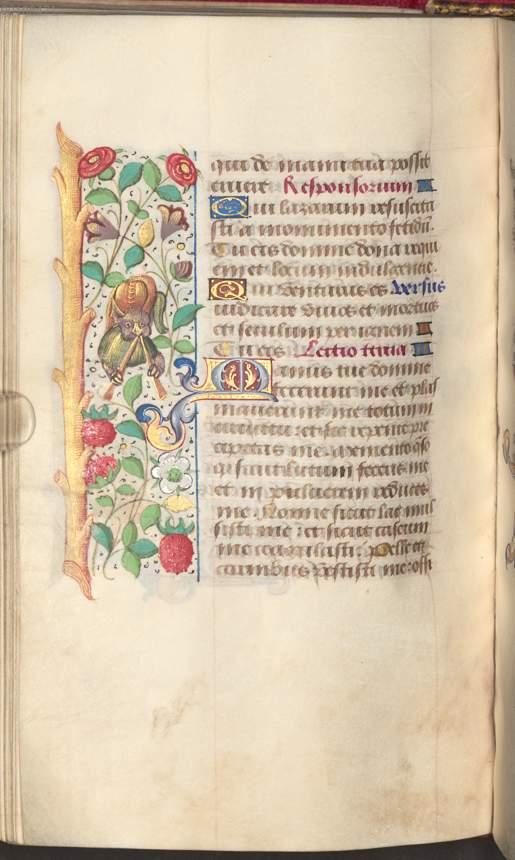 qui de manu tua possit
eruere Responsorium
Qui lazarum resuscita
sti a monumento fetidum
Tu eis domine dona requi
em et locum indulgentie.
Qui venturus es versus
iudicare vivos et mortuos
et seculum per ignem
Tu eis Lectio tertia
Manus tue domine
fecerunt me et plas
maverunt me totum in
circuitu: et sic repente pre
cipitas me. memento queso
quod sicut lutum feceris me
et in pulverem reduces
me. Nonne sicut lac mul
sisti me: et sicut caseum
me coagulasti. Pelle et
carnibus vestisti me: ossi